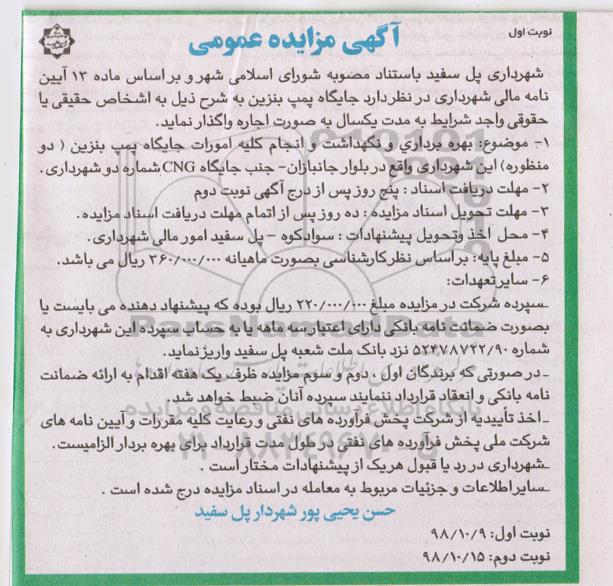 نوبت اول
آگهی مزایده عمومی
شهرداری پل سفید باستناد مصوبه شورای اسلامی شهر و بر اساس ماده ۱۳ آیین
نامه مالی شهرداری در نظر دارد جایگاه پمپ بنزین به شرح ذیل به اشخاص حقیقی یا
حقوقی واجد شرایط به مدت یکسال به صورت اجاره واگذار نماید.
۱- موضوع: بهره برداری و نگهداشت و انجام کلیه امورات جایگاه پمپ بنزین ( دو
منظوره) این شهرداری واقع در بلوار جانبازان- جنب جایگاه CNG شماره دو شهرداری.
۲- مهلت دریافت اسناد : پنج روز پس از درج آگهی نوبت دوم
۳- مهلت تحویل اسناد مزایده : ده روز پس از اتمام مهلت دریافت اسناد مزایده.
۴- محل اخذ وتحویل پیشنهادات : سوادکوه - پل سفید امور مالی شهرداری.
۵- مبلغ پایه: بر اساس نظر کارشناسی بصورت ماهیانه ۳۶۰/۰۰۰/۰۰۰ ریال می باشد.
۶- سایر تعهدات:
_سپرده شرکت در مزایده مبلغ ۲۲۰/۰۰۰/۰۰۰ ریال بوده که پیشنهاد دهنده می بایست یا
بصورت ضمانت نامه بانکی دارای اعتبار سه ماهه یا به حساب سپرده این شهرداری به
شماره ۵۲۴۷۸۷۲۲/۹۰ نزد بانک ملت شعبه پل سفید واریز نماید.
_در صورتی که برندگان اول ، دوم و سوم مزایده ظرف یک هفته اقدام به ارائه ضمانت
نامه بانکی و انعقاد قرارداد ننمایند سپرده آنان ضبط خواهد شد.
_اخذ تأییدیه از شرکت پخش فرآورده های نفتی و رعایت کلیه مقررات و آیین نامه های
شرکت ملی پخش فرآورده های نفتی در طول مدت قرارداد برای بهره بردار الزامیست.
_شهرداری در رد یا قبول هر یک از پیشنهادات مختار است .
_سایر اطلاعات و جزئیات مربوط به معامله در اسناد مزایده درج شده است .
حسن یحیی پور شهردار پل سفید
نوبت اول: ۹۸/۱۰/۹
نوبت دوم: ۹۸/۱۰/۱۵